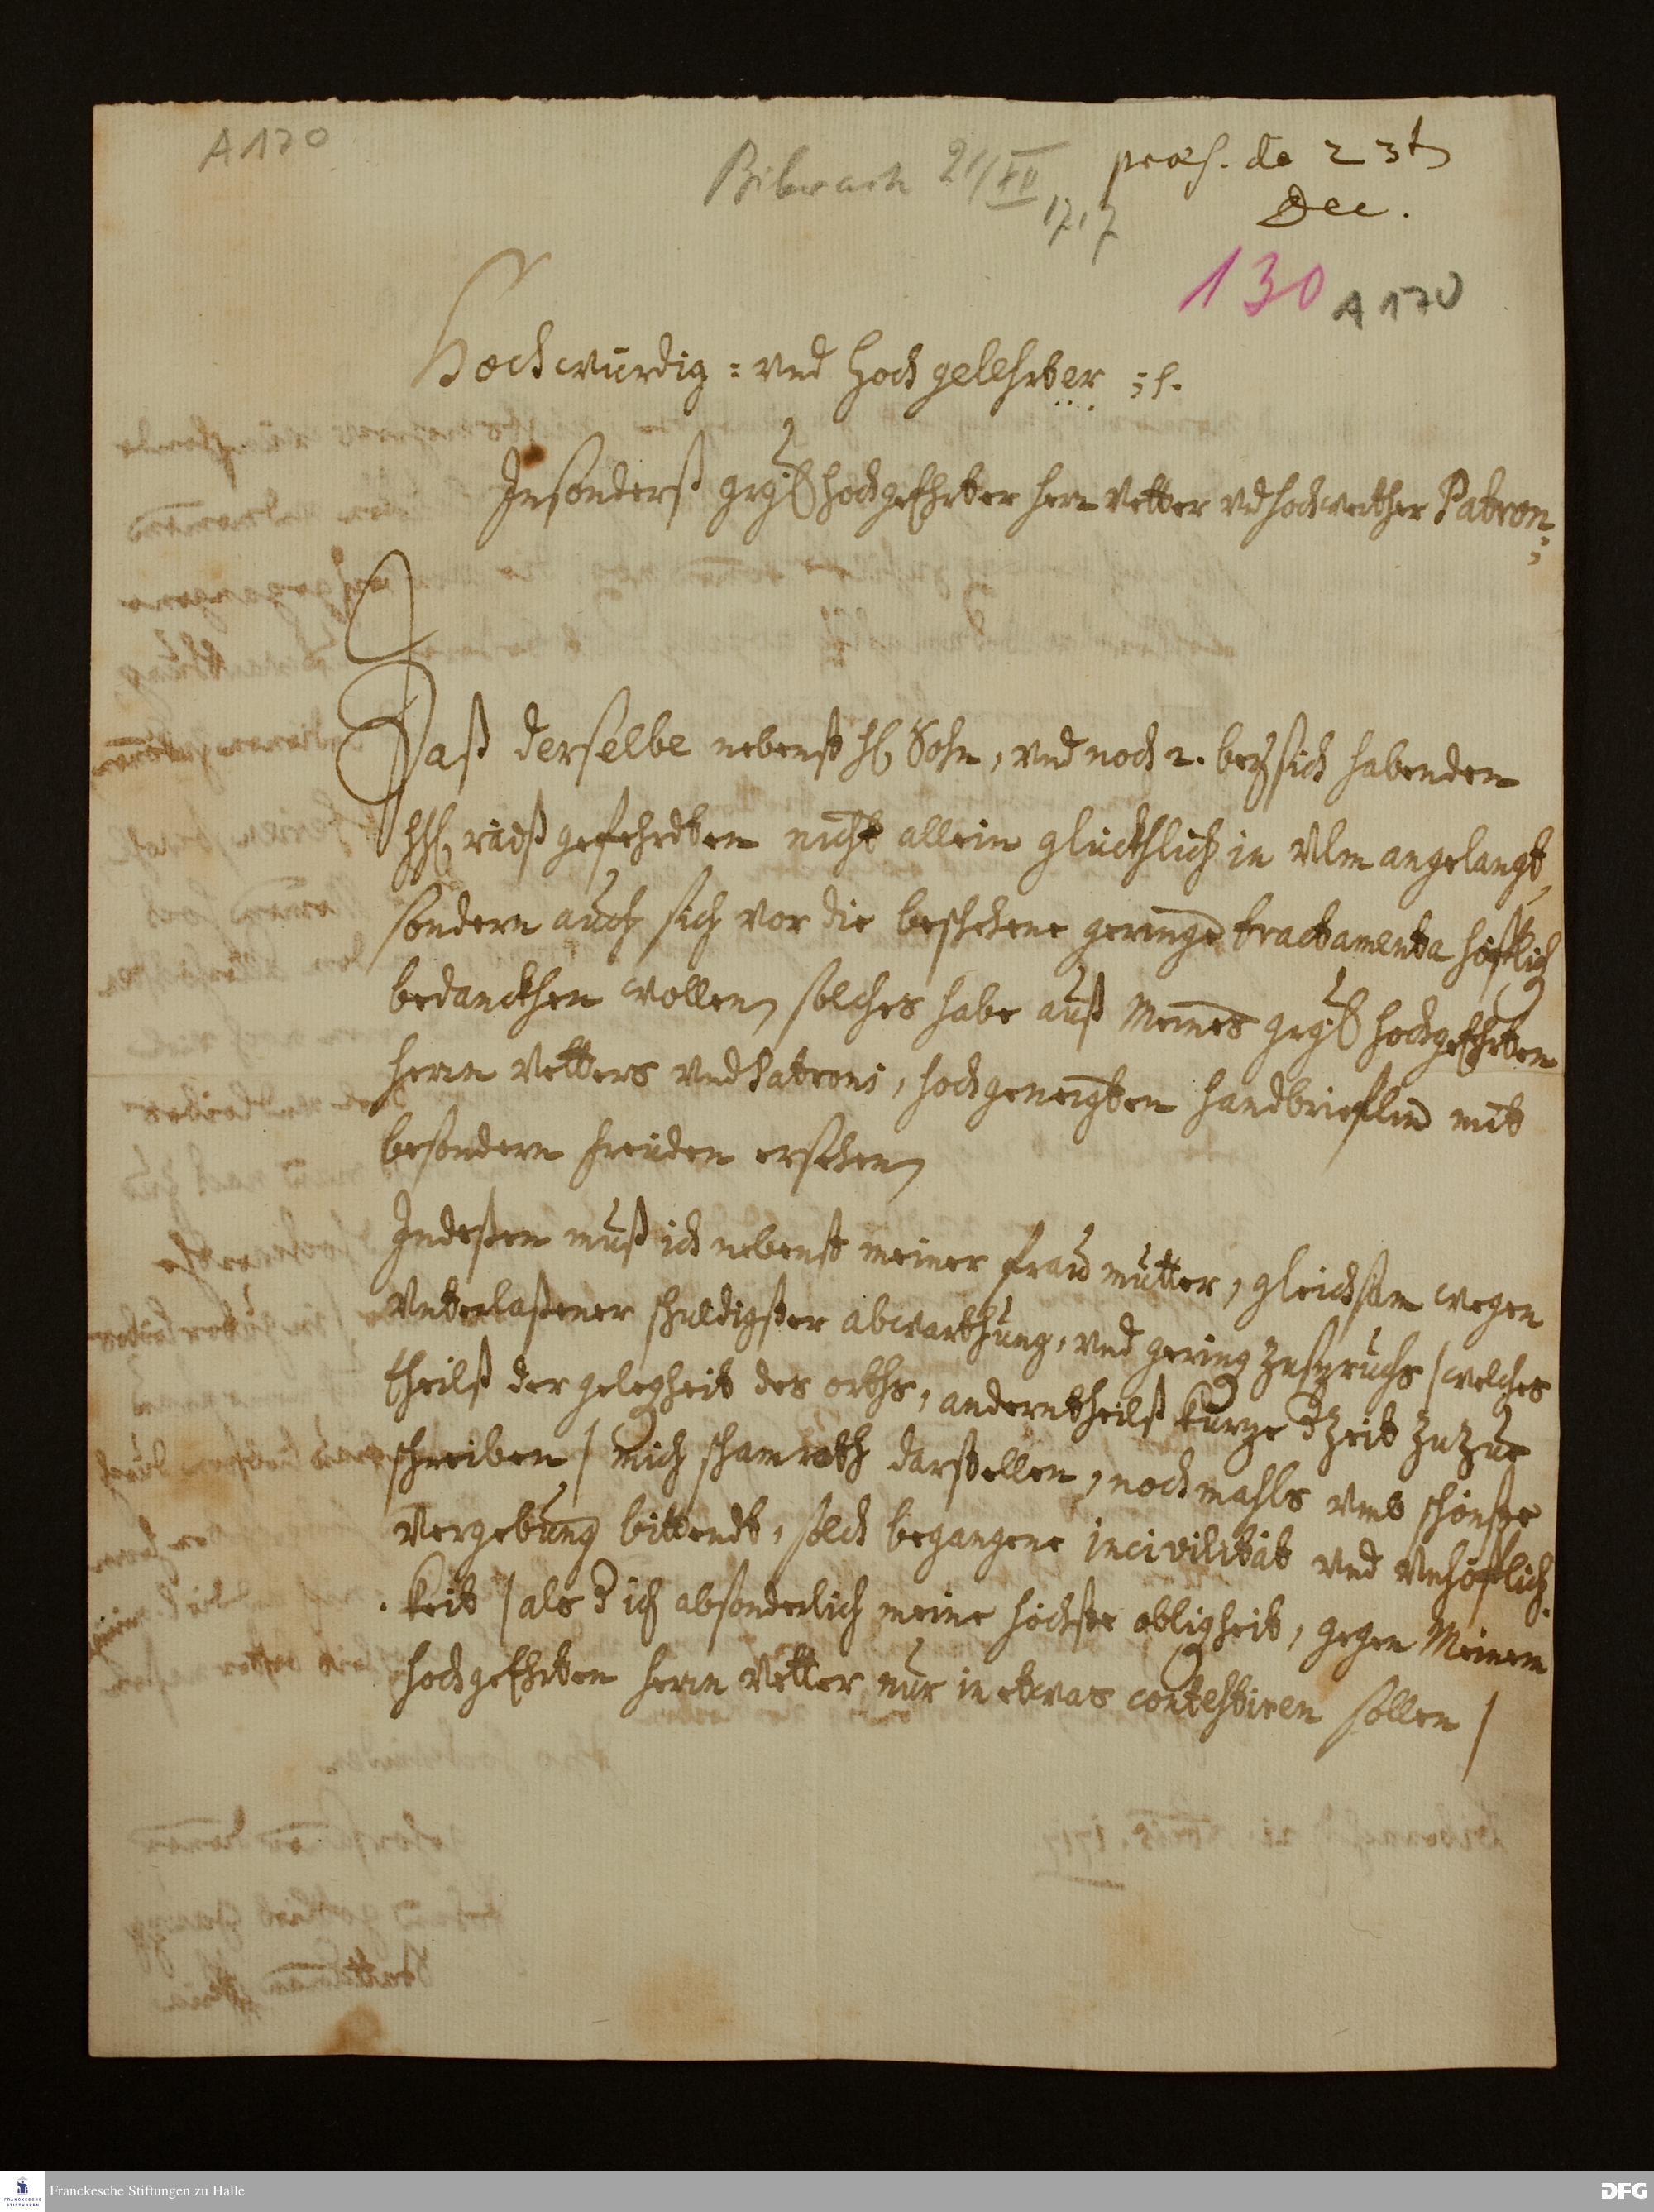 A 170
Biberach 21/XII 1717
praes. de 23t
Dec.
130 A 170
Hochwürdig= vnd Hochgelehrter ;c.
Insonderß grgl hochgeEhrter Herr Vetter vnd hochwerther Patron;
Daß derselbe nebenst hl Sohn, vnd noch 2. bey sich habenden
hhl raißgefehrdten nicht allein glückhlich in Vlm angelangt,
sondern auch sich vor die beschehene geringe tractamenta höfflich
bedanckhen wollen, solches habe auß Meines grgl hochgeEhrten
Herrn Vetters vnd Patroni, hochgeneigten handbrieflin mit
besondern freuden ersehen,
Indeßen muß ich nebenst meiner frau mutter, gleichsam wegen
Vnterlaßener schuldigster abwarthung, vnd gering Zuspruchs /welches
theilß der gelegheit des orths, anderntheilß kurze Zeit Zuzue
schreiben / mich schamroth darstellen, nochmahls vmb schönste
Vergebung bittendt, solch begangene incivilität vnd Vnhöfflich-
keit / als ich absonderlich meine höchste obligheit, gegen Meinem
hochgeEhrten Herrn Vetter nur in etwas contestiren sollen /
Franckesche Stiftungen zu Halle
DFG